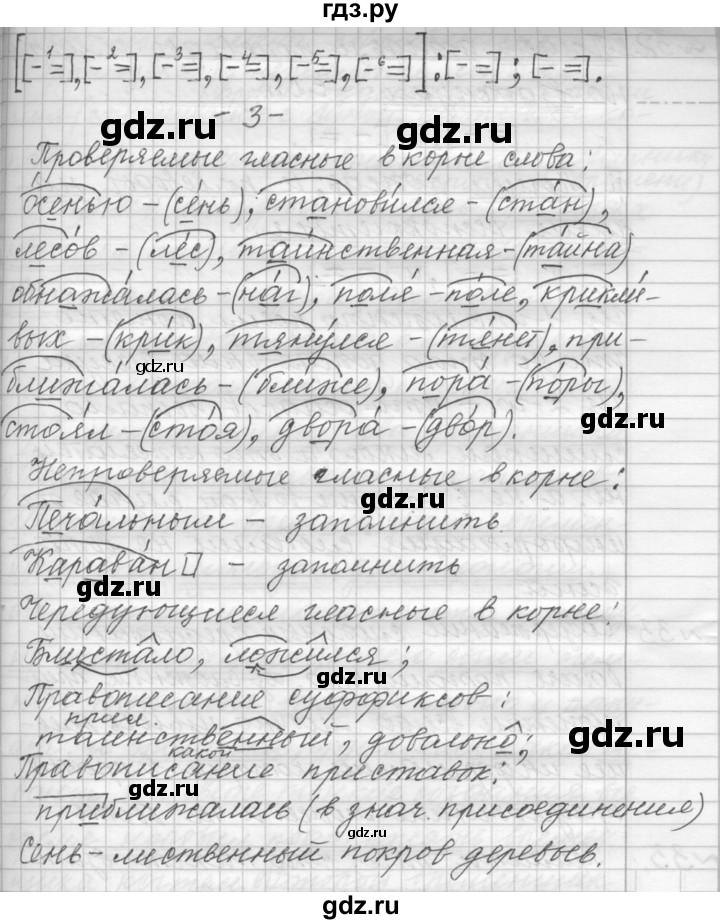 гдз.ру
[[-¹=],[-²=],[-³=],[-⁴=],[-⁵=],[-⁶=]]:[-=];[-=].
- 3 -
gdz.ru gdz.ru
Проверяемые гласные в корне слова:
осенью – (се́нь), станови́лся – (ста́н),
gdz.ru gdz.ru
лесо́в – (ле́с), таи́нственная – (та́йна)
обнажа́лась – (на́г), поля́ – по́ле, крикли́-
вых – (кри́к), тяну́лся – (тя́нет), при-
gdz.ru
ближа́лась – (бли́же), пора́ – (по́ры),
gdz.ru
стоя́л – (сто́я), двора́ – (дво́р).
Непроверяемые гласные в корне:
gdz.ru
Печа́льным – запомнить
Карава́н – запомнить
gdz.ru
Чередующиеся гласные в корне:
Блистало, ложился;
Правописание суффиксов:
прил.
таинственный, довольно;
gdz.ru
какой
Правописание приставок:
gdz.ru
приближалась (в знач. присоединения)
Сень – лиственный покров деревьев.
gdz.ru gdz.ru